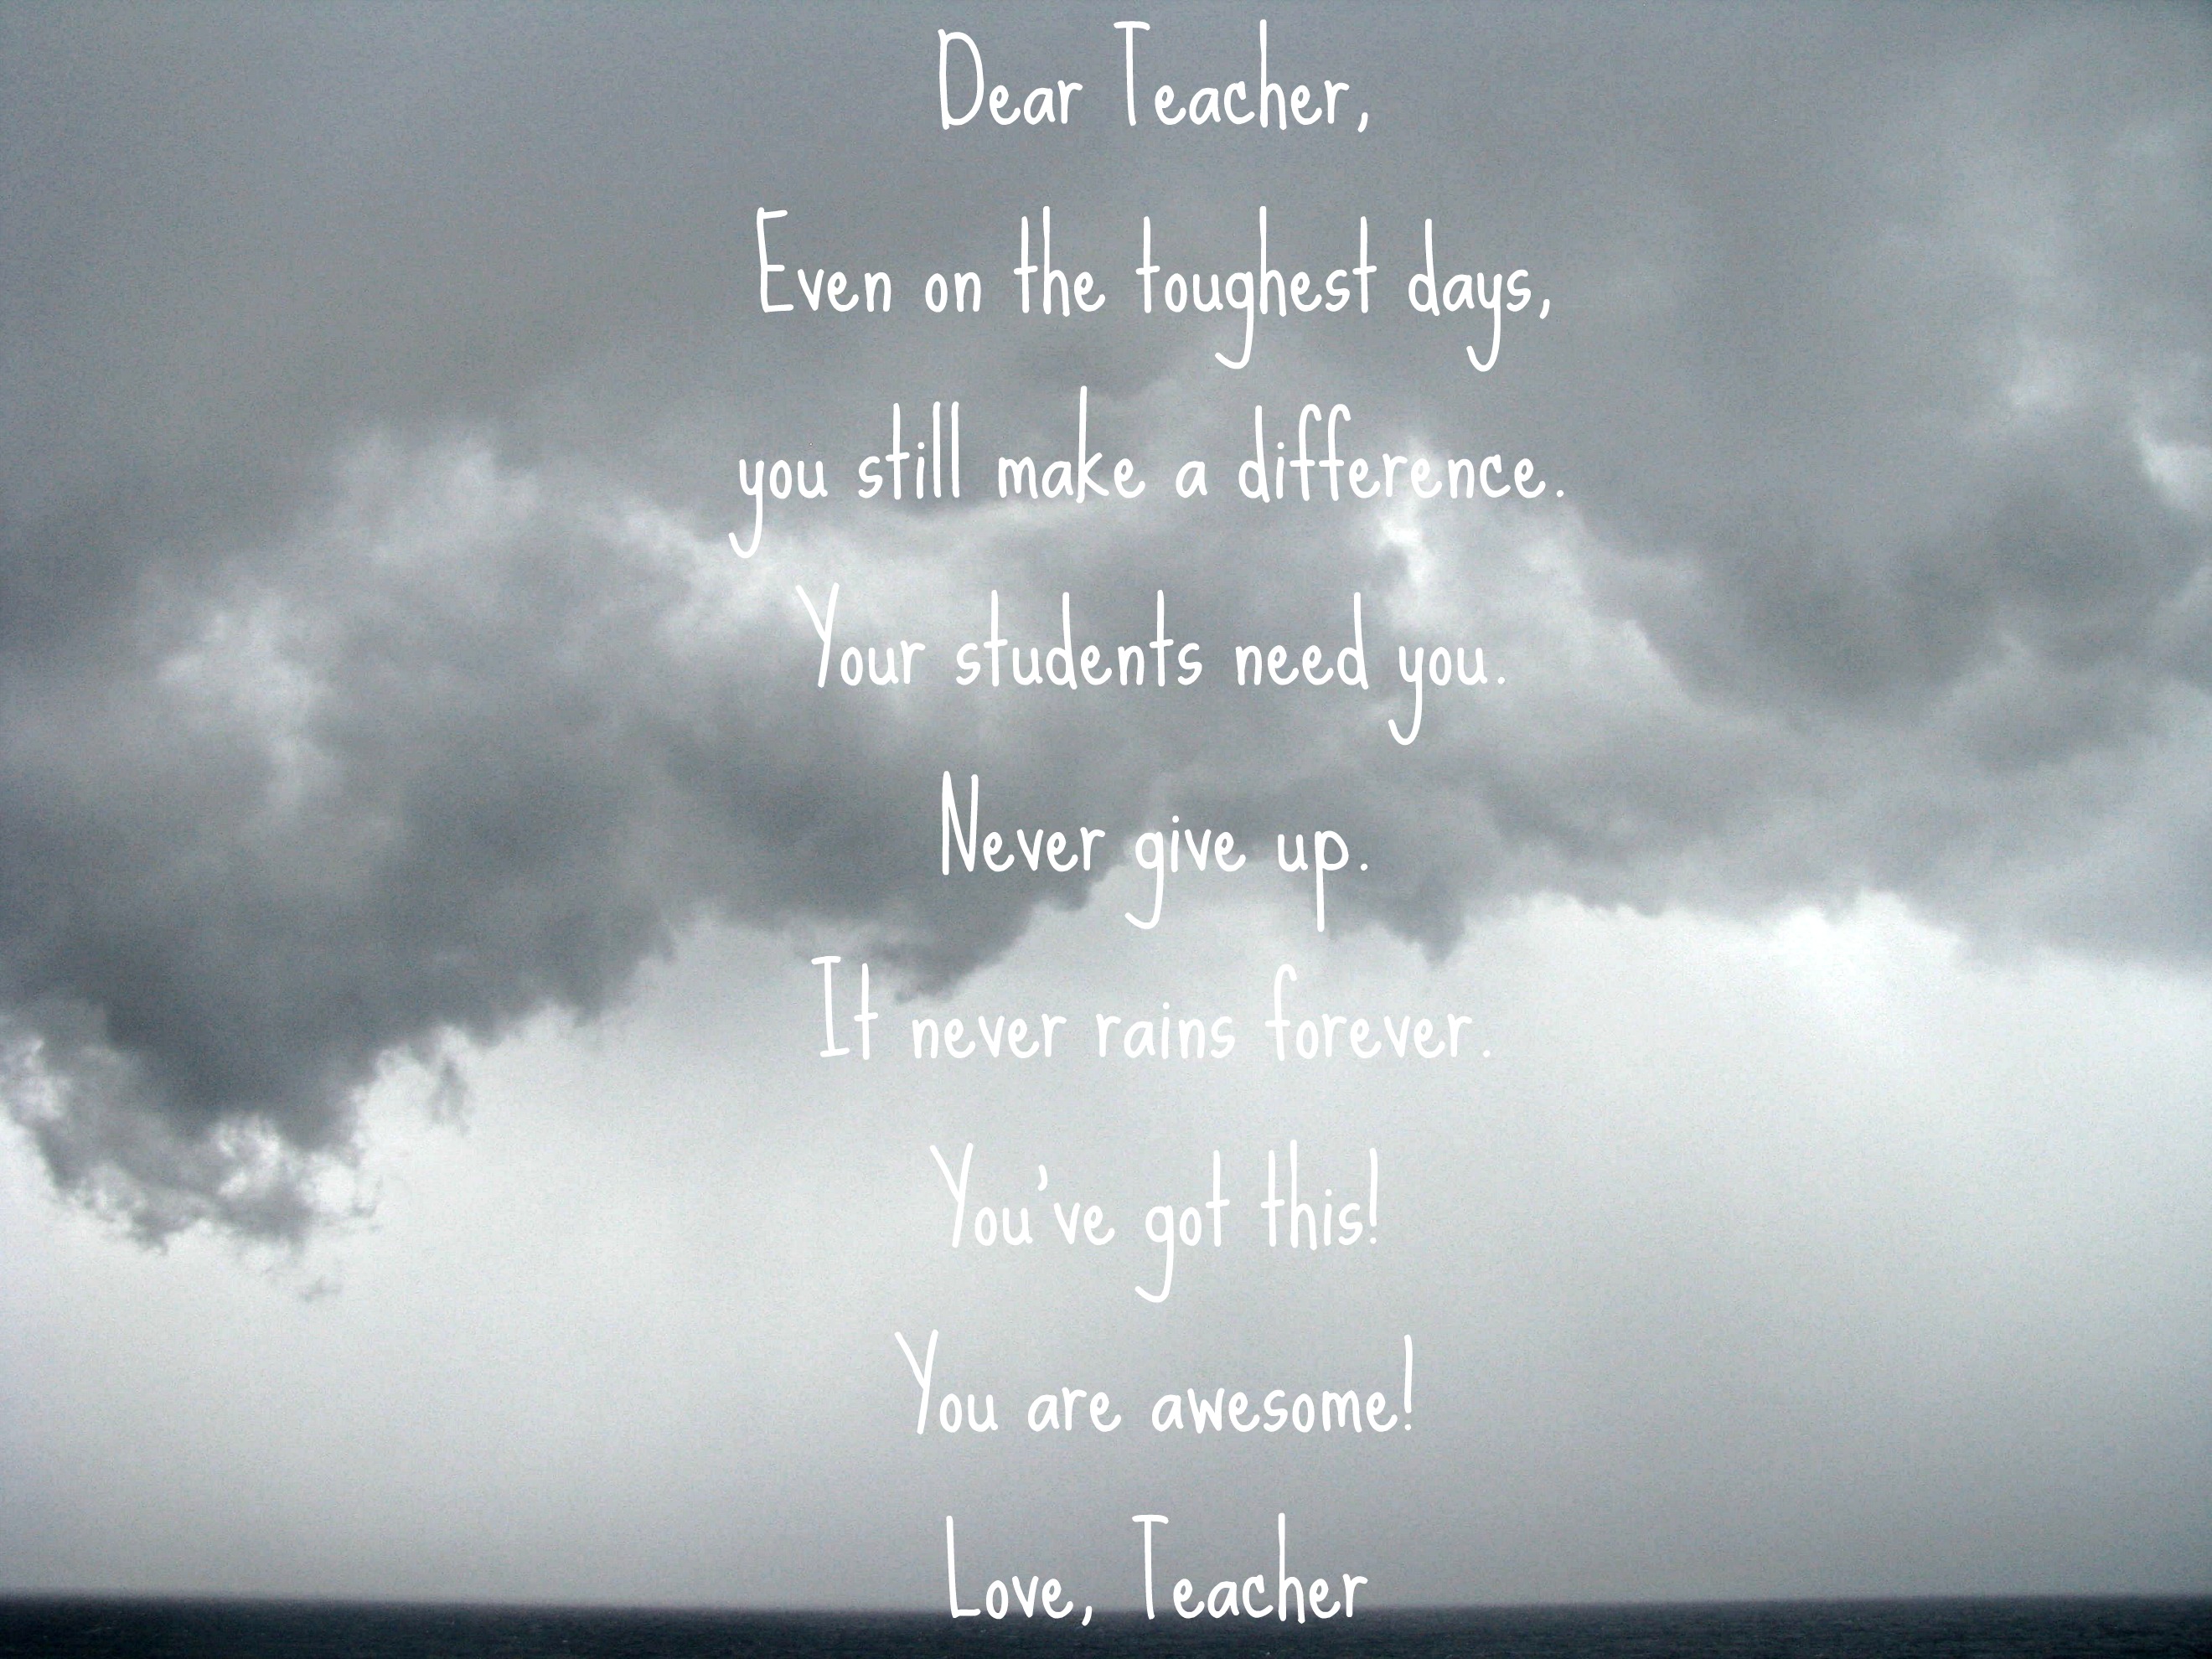 Dear Teacher,
Even on the toughest days,
you still make a difference.
Your students need you.
Never give up.
It never rains forever.
You've got this!
You are awesome!
Love, Teacher